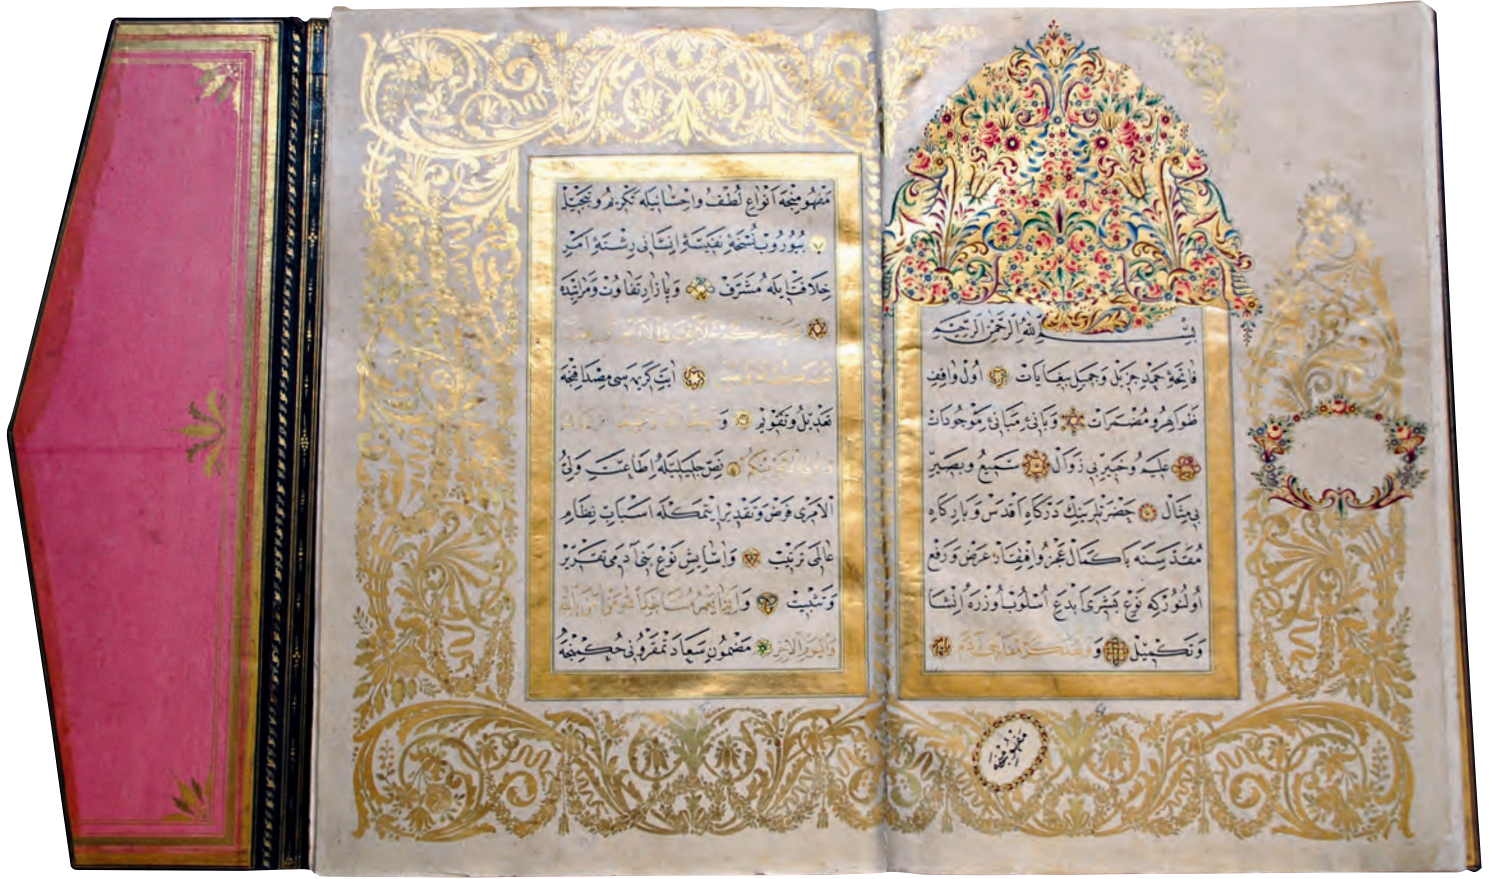 بسم الله الرحمن الرحيم
فاتحۀ حمد جزيل وجميل بیغایات اول واقف
ظواهر ومضمرات وبانئ مبانئ موجودات
عليم وخبير بی زوال سميع وبصير
بی مثال حضرتلرينك درگاه اقدس وبارگاه
مقدسنه با كمال عجز وافتقار عرض ورفع
اولنور كه نوع بشری ابدع اسلوب اوزره انشا
وتكميل و ولقد كرمنا بنی آدم
مفهومنجه
مفهومنجه انواع لطف واحسانيله تكريم وتبجيل
بيوروب نسخۀ نفيسۀ انسانی رشتۀ امر
خلافت ايله مشرف وبازار تفاوت ومراتبده
ايت كريمه سی مصداقنجه
تعديل وتقويم و
نص جليليله اطاعت ولی
الامری فرض وتقدير ايتمكله اسباب نظام
عالمی ترتيب واسايش نوع بنی آدمی تقرير
وتثبيت و انما يعمر مساجد الله من آمن بالله
واليوم الآخر مضمون سعادتمقرونی حكمنجه